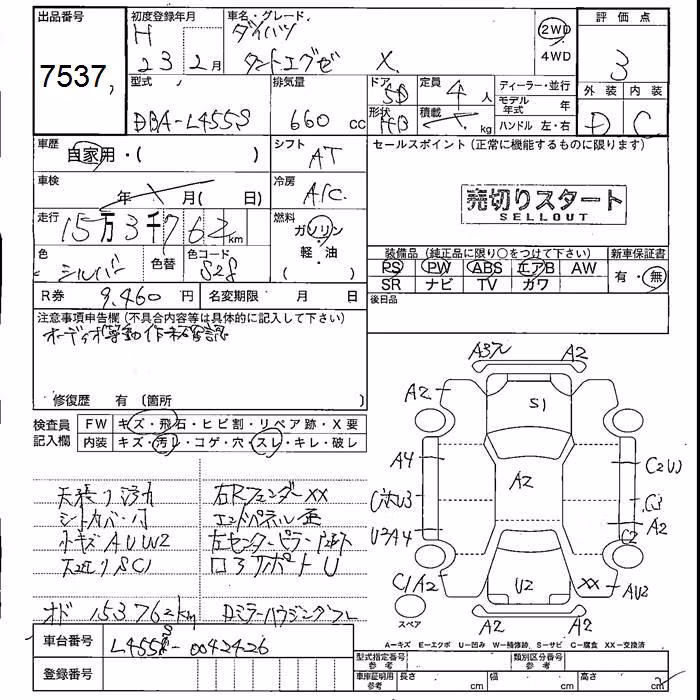 出品番号
7537,
初度登録年月
H
23 2月
車名・グレード
ダイハツ
タントエグゼ X
2WD
4WD
評価点
3
外装 内装
D C
型式
DBA-L455S
排気量
660 cc
ドア
5D
形状
HB
定員
4人
積載
kg
ディーラー・並行
モデル年式 年
ハンドル 左・右
車歴
自家用・( )
シフト
AT
セールスポイント(正常に機能するものに限ります)
売切りスタート
SELLOUT
車検
年 月( 日)
冷房
A/C
走行
15万3千762km
燃料
ガソリン
軽・油
( )
色
シルバー
色替
色コード
S28
装備品(純正品に限り○をつけて下さい)
PS PW ABS エアB AW
SR ナビ TV カワ
新車保証書
有・無
R券 9,460円
名変期限 月 日
後日品
注意事項申告欄(不具合内容等は具体的に記入して下さい)
オーディオ等動作未確認
修復歴 有(箇所 )
検査員記入欄
FW キズ・飛石・ヒビ割・リペア跡・X要
内装 キズ・汚レ・コゲ・穴・スレ・キレ・破レ
天張り汚れ
シートカバー
小キズAUW2
SC1
オド 153762km
右RフェンダーXX
エンドパネル歪
左センターピラー
ロアサポートU
A3
A2
A2
S1
A4
A2
C2W
U3
C3
A2
U2A4
C2
C1A2
U2
XX
AU2
A2
A2
スペア
A=キズ E=エクボ U=凹み W=補修跡 S=サビ C=腐食 XX=交換済
車台番号
L455S-0042426
登録番号
型式指定番号
参考
類別区分番号
参考
車庫証明用
参考
長さ cm
幅 cm
高さ cm